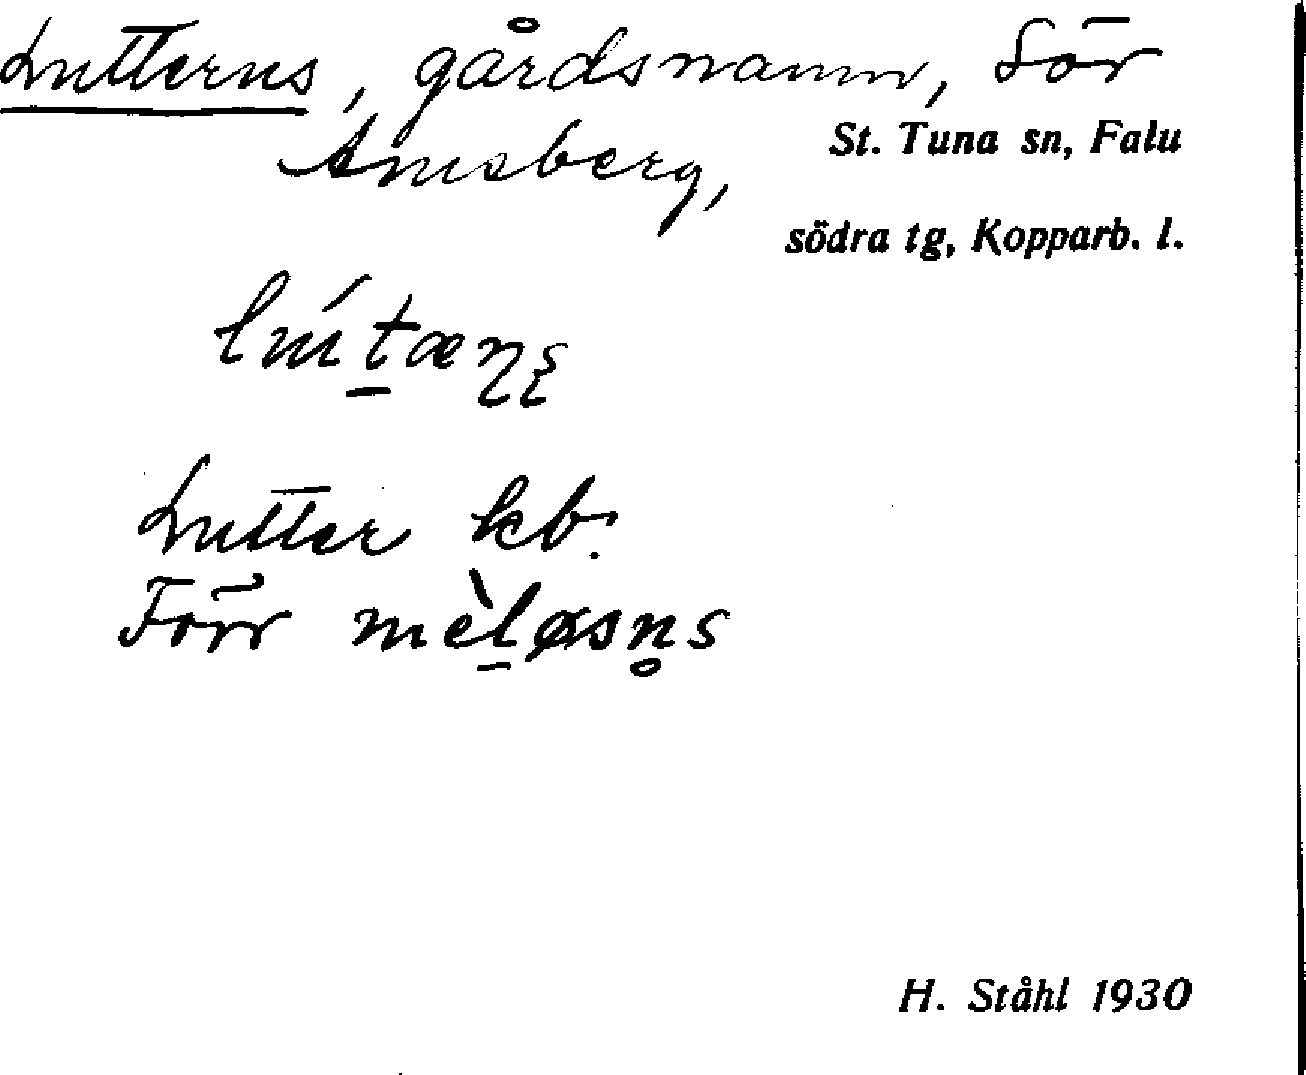 Lutterns, gårdsnamn, Sör
Amsberg,
St. Tuna sn, Falu
södra tg, Kopparb. l.
Lutter kb.
Förr
H. Ståhl 1930